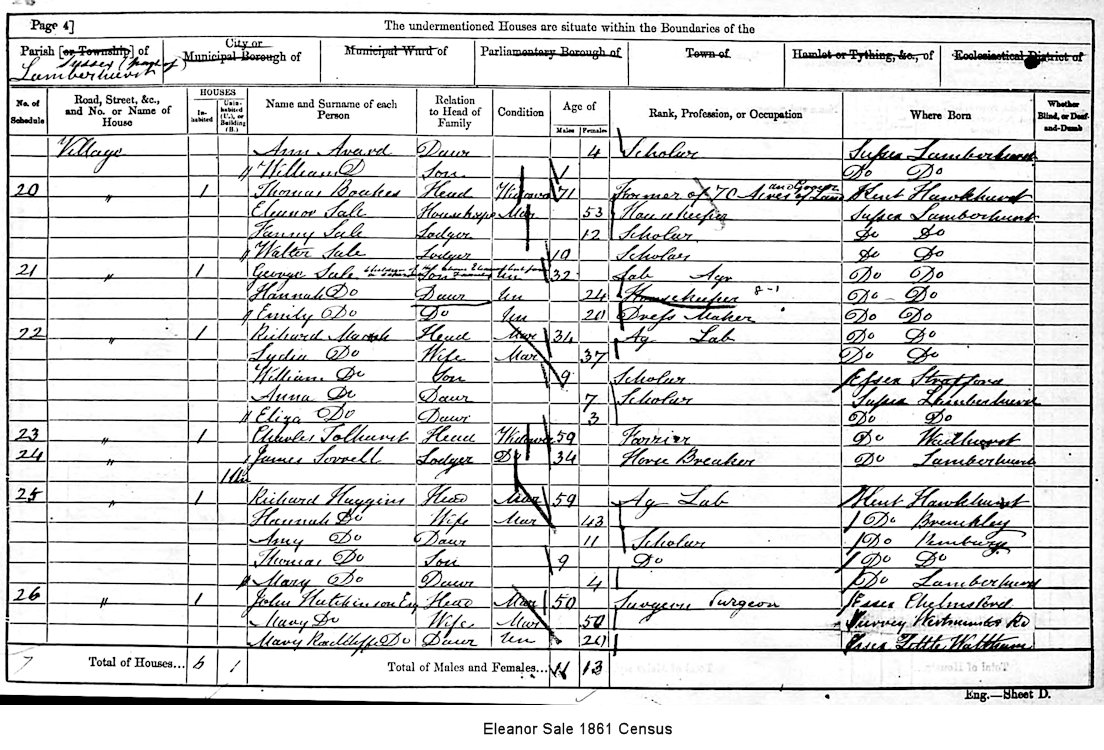 Page 4]
The undermentioned Houses are situate within the Boundaries of the
Parish [or Township] of
City or
Municipal Borough of
Municipal Ward of
Parliamentary Borough of
Town of
Hamlet or Tything, &c., of
Ecclesiastical District of
Lamberhurst
No. of Schedule
Road, Street, &c., and No. or Name of House
HOUSES
Inhabited
Uninhabited (U.), or Building (B.)
Name and Surname of each Person
Relation to Head of Family
Condition
Age of
Males
Females
Rank, Profession, or Occupation
Where Born
Whether Blind, or Deaf-and-Dumb
Village Ann Avard Daur 4 Scholar Sussex Lamberhurst
William D Son 1 Do Do
20 1 Thomas Head 71 Farmer of 70 Acres of Land Kent Hawkhurst
Eleanor Sale Mar 53 Housekeeper Sussex Lamberhurst
Fanny Sale Lodger 12 Scholar Do Do
Walter Sale Lodger 10 Scholar Do Do
21 " 1 George Sale Son Un 32 Lab Agr Do Do
Hannah Do Daur Un 24 Housekeeper 8-1 Do Do
Emily Do Do Un 20 Dress Maker Do Do
22 " 1 Richard Head Mar 34 Ag Lab Do Do
Lydia Do Wife Mar 37 Do Do
William Do Son 9 Scholar Essex Stratford
Anna Do Daur 7 Scholar Sussex Lamberhurst
Eliza Do Daur 3 Do Do
23 " 1 Charles Tolhurst Head 59 Farrier Do Wadhurst
24 " James Sorrell Lodger Do 34 Horse Breaker Do Lamberhurst
25 " 1 Richard Huggins Head Mar 59 Ag Lab Kent Hawkhurst
Hannah Do Wife Mar 43 Do Brenchley
Amy Do Daur 11 Scholar Do Pembury
Thomas Do Son 9 Do Do Do
Mary Do Daur 4 Do Lamberhurst
26 " 1 John Hutchinson Head Mar 50 Surgeon Surgeon Essex Chelmsford
Mary Do Wife Mar 50 Surrey
Mary Radcliffe Do Daur Un 20 Essex Little Waltham
7 Total of Houses... 6 1 Total of Males and Females... 11 13
Eng.—Sheet D.
Eleanor Sale 1861 Census